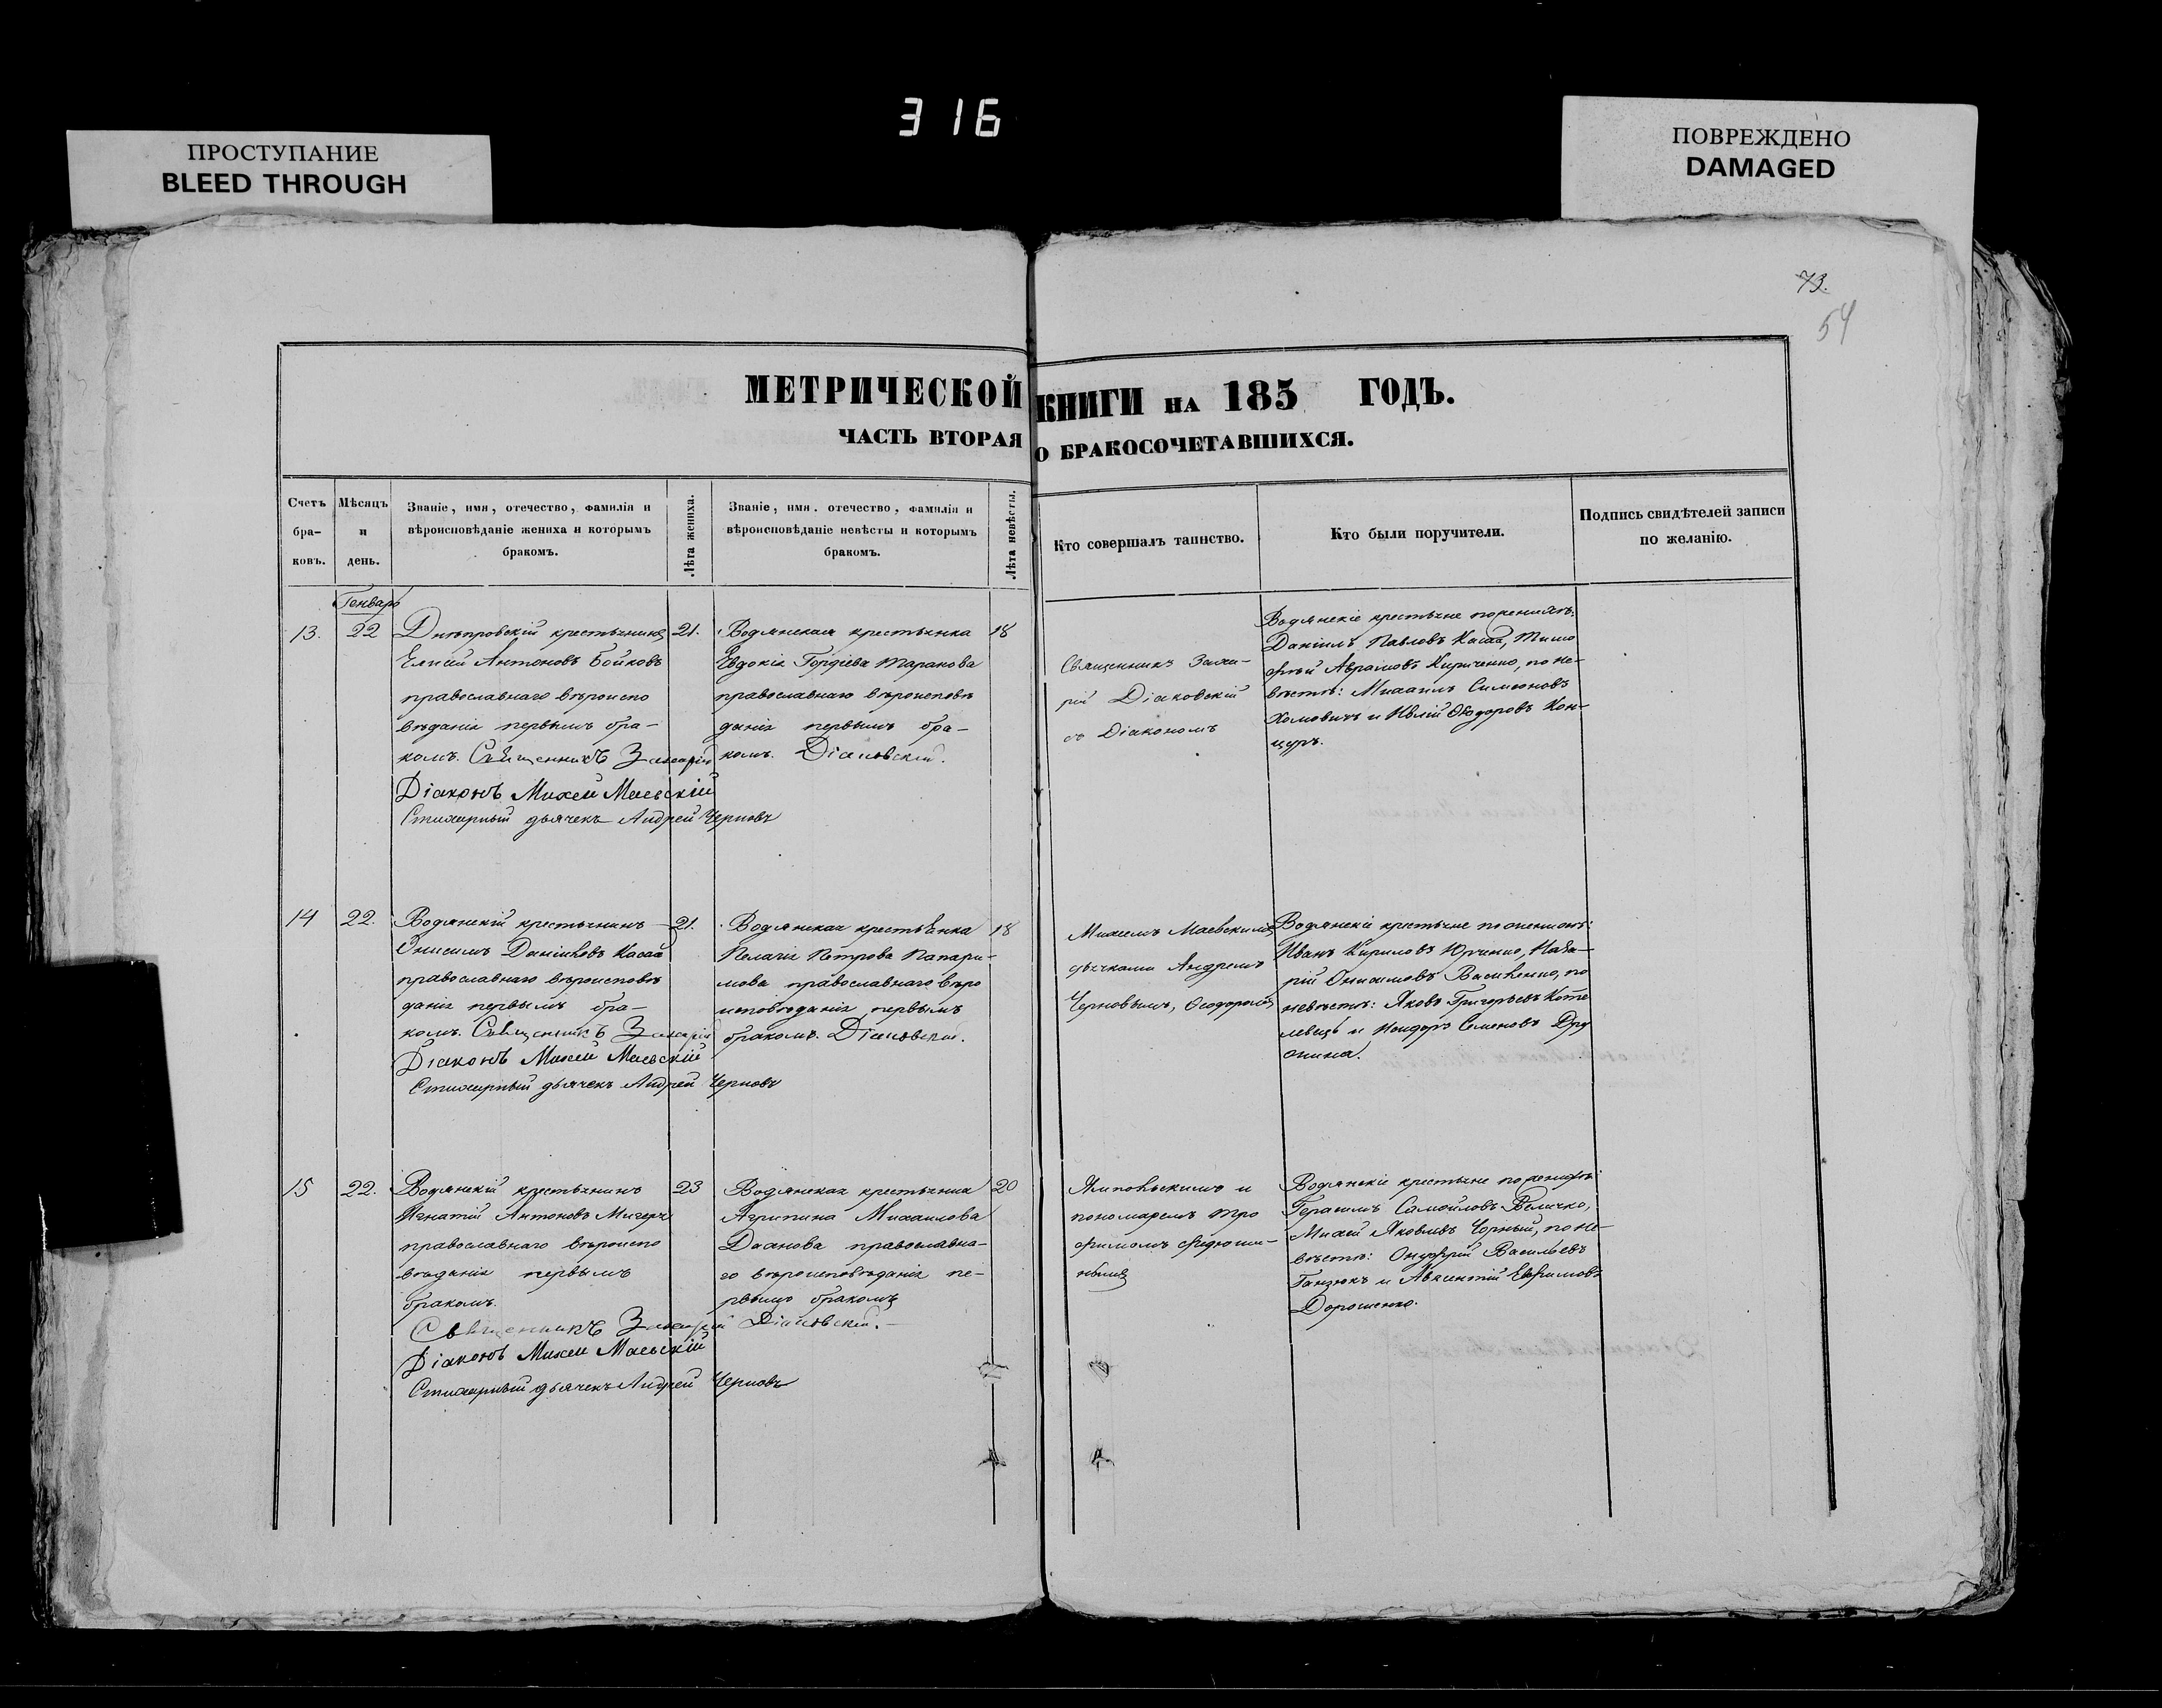 316
ПРОСТУПАНИЕ
BLEED THROUGH
ПОВРЕЖДЕНО
DAMAGED
73.
54
МЕТРИЧЕСКОЙ КНИГИ НА 185 ГОДЪ.
ЧАСТЬ ВТОРАЯ О БРАКОСОЧЕТАВШИХСЯ.
Счетъ
бра-
ковъ.
Мѣсяцъ
и
день.
Званіе, имя, отечество, фамилія и
вѣроисповѣданіе жениха и которымъ
бракомъ.
Лѣта жениха.
Званіе, имя. отечество, фамилія и
вѣроисповѣданіе невѣсты и которымъ
бракомъ.
Лѣта невѣсты.
Кто совершалъ таинство.
Кто были поручители.
Подпись свидѣтелей записи
по желанію.
Генварь
13.
22
Днѣпровскій крестьянинъ
Елисей Антоновъ Бойковъ
православнаго вѣроиспо
вѣданія первымъ бра-
комъ. Священникъ Захарій
Діаконъ Михей Маевскій
Стихарный дьячекъ Андрей Черновъ
21.
Водянская крестьянка
Евдокія Гордіева Таранова
православнаго вѣроисповѣ
данія первымъ бра-
комъ. Діаковскій.
18
Священникъ Заха-
рій Діаковскій
съ Діакономъ
Водянскіе крестьяне по женихѣ:
Даніилъ Павловъ Касай, Тимо
фѣй Аврамовъ Кириченко, по не-
вѣстѣ: Михаилъ Симеоновъ
Хомовичъ и Ѳеодоровъ Кон-
цуръ.
14
22.
Водянскій крестьянинъ
Онисимъ Даніиловъ Касай
православнаго вѣроисповѣ
данія первымъ бра-
комъ. Священникъ Захарій
Діаконъ Михей Маевскій
Стихарный дьячекъ Андрей Черновъ
21.
Водянская крестьянка
Пелагія Петрова Папари-
мова православнаго вѣро
исповѣданія первымъ
бракомъ. Діаковскій.
18
Михеемъ Маевскимъ
дьячками Андреемъ
Черновымъ, Ѳеодоромъ
Водянскіе крестьяне по женихѣ:
Иванъ Кириловъ Юрченко, Наза-
рій Онисимовъ Василенко, по
невѣстѣ: Яковъ Григорьевъ Коте
левецъ и Исидоръ Семеновъ

15
22.
Водянскій крестьянинъ
Игнатій Антоновъ Мигеря
православнаго вѣроиспо
вѣданія первымъ
бракомъ.
Священникъ Захарій Діаковскій.
Діаконъ Михей Маевскій
Стихарный дьячекъ Андрей Черновъ
23
Водянская крестьянка
Агрипина Михаилова
православна-
го вѣроисповѣданія пе-
рвымъ бракомъ
20
Ямпольскимъ и
пономаремъ Тро
фимомъ
Водянскіе крестьяне по женихѣ:
Герасимъ Самойловъ Величко,
Михей Яковлевъ Чорный, по не-
вѣстѣ: Онуфрій Васильевъ
Ганзюкъ и Авксентій Ефимовъ
Дорошенко.